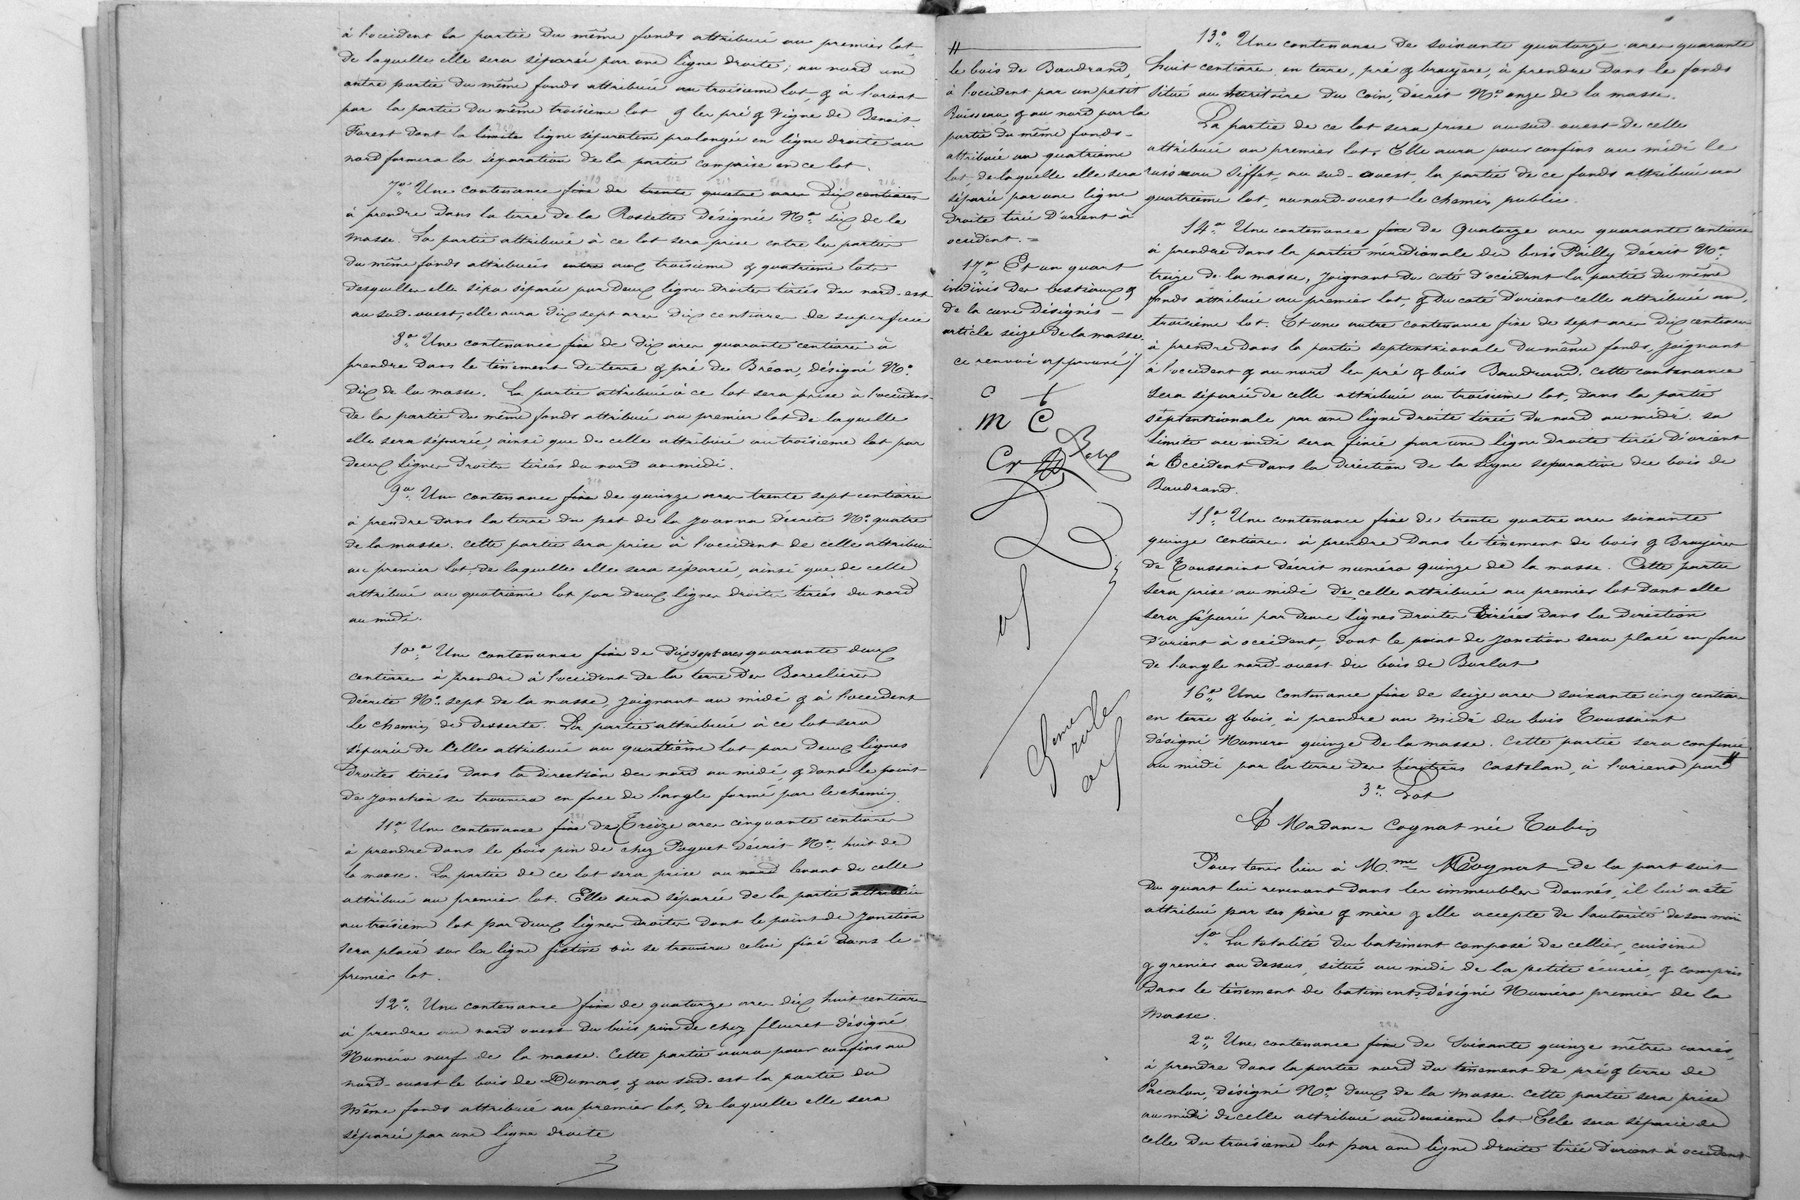 à l'occident la partie du même fonds attribuée au premier lot
de laquelle elle sera séparée par une ligne droite; au nord une
autre partie du même fonds attribuée au troisième lot, & à l'orient
par la partie du même troisième lot & les pré & vigne de Benoit
Forest dont la limite ligne séparative prolongée en ligne droite au
nord formera la séparation de la partie comprise en ce lot.
7° Une contenance fixe de trente quatre ares dix centiares
à prendre dans la terre de la Rossette désignée N° six de la
masse. La partie attribuée à ce lot sera prise entre les parties
du même fonds attribuées entre aux troisième & quatrième lots
desquelles elle sera séparée par deux lignes droites tirées du nord-est
au sud-ouest; elle aura dix sept ares dix centiares de superficie
8° Une contenance fixe de dix ares quarante centiares à
prendre dans le tènement de terre & pré des Bréon, désigné N°
dix de la masse. La partie attribuée à ce lot sera prise à l'occident
de la partie du même fonds attribuée au premier lot de laquelle
elle sera séparée, ainsi que de celle attribuée au troisième lot par
deux lignes droites tirées du nord au midi.
9° Une contenance fixe de quinze ares trente sept centiares
à prendre dans la terre du pet de la Joanna décrite N° quatre
de la masse. Cette partie sera prise à l'occident de celle attribuée
au premier lot, de laquelle elle sera séparée, ainsi que de celle
attribuée au quatrième lot par deux lignes droites tirées du nord
au midi.
10° Une contenance fixe de dix sept ares quarante deux
centiares à prendre à l'occident de la terre des
décrite N° sept de la masse, joignant au midi & à l'occident
le chemin de desserte. La partie attribuée à ce lot sera
séparée de celles attribuée au quatrième lot par deux lignes
droites tirées dans la direction du nord au midi, & dont le point
de jonction se trouvera en face de l'angle formé par le chemin.
11° Une contenance fixe de treize ares cinquante centiares
à prendre dans le bois pin de chez Paquet décrit N° huit de
la masse. La partie de ce lot sera prise au nord levant de celle
attribuée au premier lot. Elle sera séparée de la partie attribuée
au troisième lot par deux lignes droites dont le point de jonction
sera placé sur la ligne fictive où se trouvera celui fixé dans le
premier lot.
12° Une contenance fixe de quatorze ares dix huit centiares
à prendre au nord ouest du bois pin de chez fleuret désigné
Numéro neuf de la masse. Cette partie aura pour confins au
nord-ouest le bois de Dumas, & au sud-est la partie du
même fonds attribuée au premier lot, de laquelle elle sera
séparée par une ligne droite
le bois de Baudrand,
à l'occident par un petit
Ruisseau, & au nord par la
partie du même fonds
attribuée au quatrième
lot, de laquelle elle sera
séparée par une ligne
droite tirée d'orient à
occident. =
17° Et un quart
indivis des bestiaux &
de la cuve désignés
article seize de la masse.
ce renvoi approuvé /
C
M C
Cr
9eme
role
13° Une contenance de soixante quatorze ares quarante
huit centiares en terre, pré & bruyère, à prendre dans le fonds
situé au territoire du Coin, décrit N° onze de la masse.
La partie de ce lot sera prise au sud ouest de celle
attribuée au premier lot. Elle aura pour confins au midi le
ruisseau Siffet, au sud-ouest, la partie de ce fonds attribuée au
quatrième lot, au nord-ouest le chemin public.
14° Une contenance fixe de quatorze ares quarante centiares
à prendre dans la partie méridionale du bois Pailly décrit N°
treize de la masse, joignant du coté d'occident la partie du même
fonds attribuée au premier lot, & du coté d'orient celle attribuée au
troisième lot. Et une autre contenance fixe de sept ares dix centiares
à prendre dans la partie septentrionale du même fonds, joignant
à l'occident & au nord les pré & bois Baudrand. Cette contenance
sera séparée de celle attribuée au troisième lot, dans la partie
septentrionale par une ligne droite tirée du nord au midi. sa
limite au midi sera fixée par une ligne droite tirée d'orient
à Occident dans la direction de la ligne séparative du bois de
Baudrand.
15° Une contenance fixe de trente quatre ares soixante
quinze centiares à prendre dans le tènement de bois & Bruyères
de Toussaint décrit numéro quinze de la masse. Cette partie
sera prise au midi de celle attribuée au premier lot dont elle
sera séparée par deux lignes droites tirées dans la direction
d'orient à occident, dont le point de jonction sera placé en face
de l'angle nord-ouest du bois de Burlat
16° Une contenance fixe de seize ares soixante cinq centiares
en terre & bois, à prendre au midi du bois Toussaint
désigné Numéro quinze de la masse. Cette partie sera confinée
au midi par la terre des héritiers Castelan, à l'orient par
3° Lot
A Madame Cognat née Tabin
Pour tenir lieu à Mme Cognat de la part soit
du quart lui revenant dans les immeubles donnés, il lui a été
attribué par ses père & mère & elle accepte de l'autorité de son mari
1° La totalité du batiment composé de cellier, cuisine
& grenier au dessus, situé au midi de la petite écurie, & compris
dans le tènement de batiments désigné Numéro premier de la
masse.
2° Une contenance fixe de soixante quinze mètres carrés,
à prendre dans la partie nord du tènement de pré & terre de
Pacalon, désigné N° deux de la masse. Cette partie sera prise
au midi de celle attribuée au deuxième lot. Elle sera séparée de
celle du troisième lot par une ligne droite tirée d'orient à occident